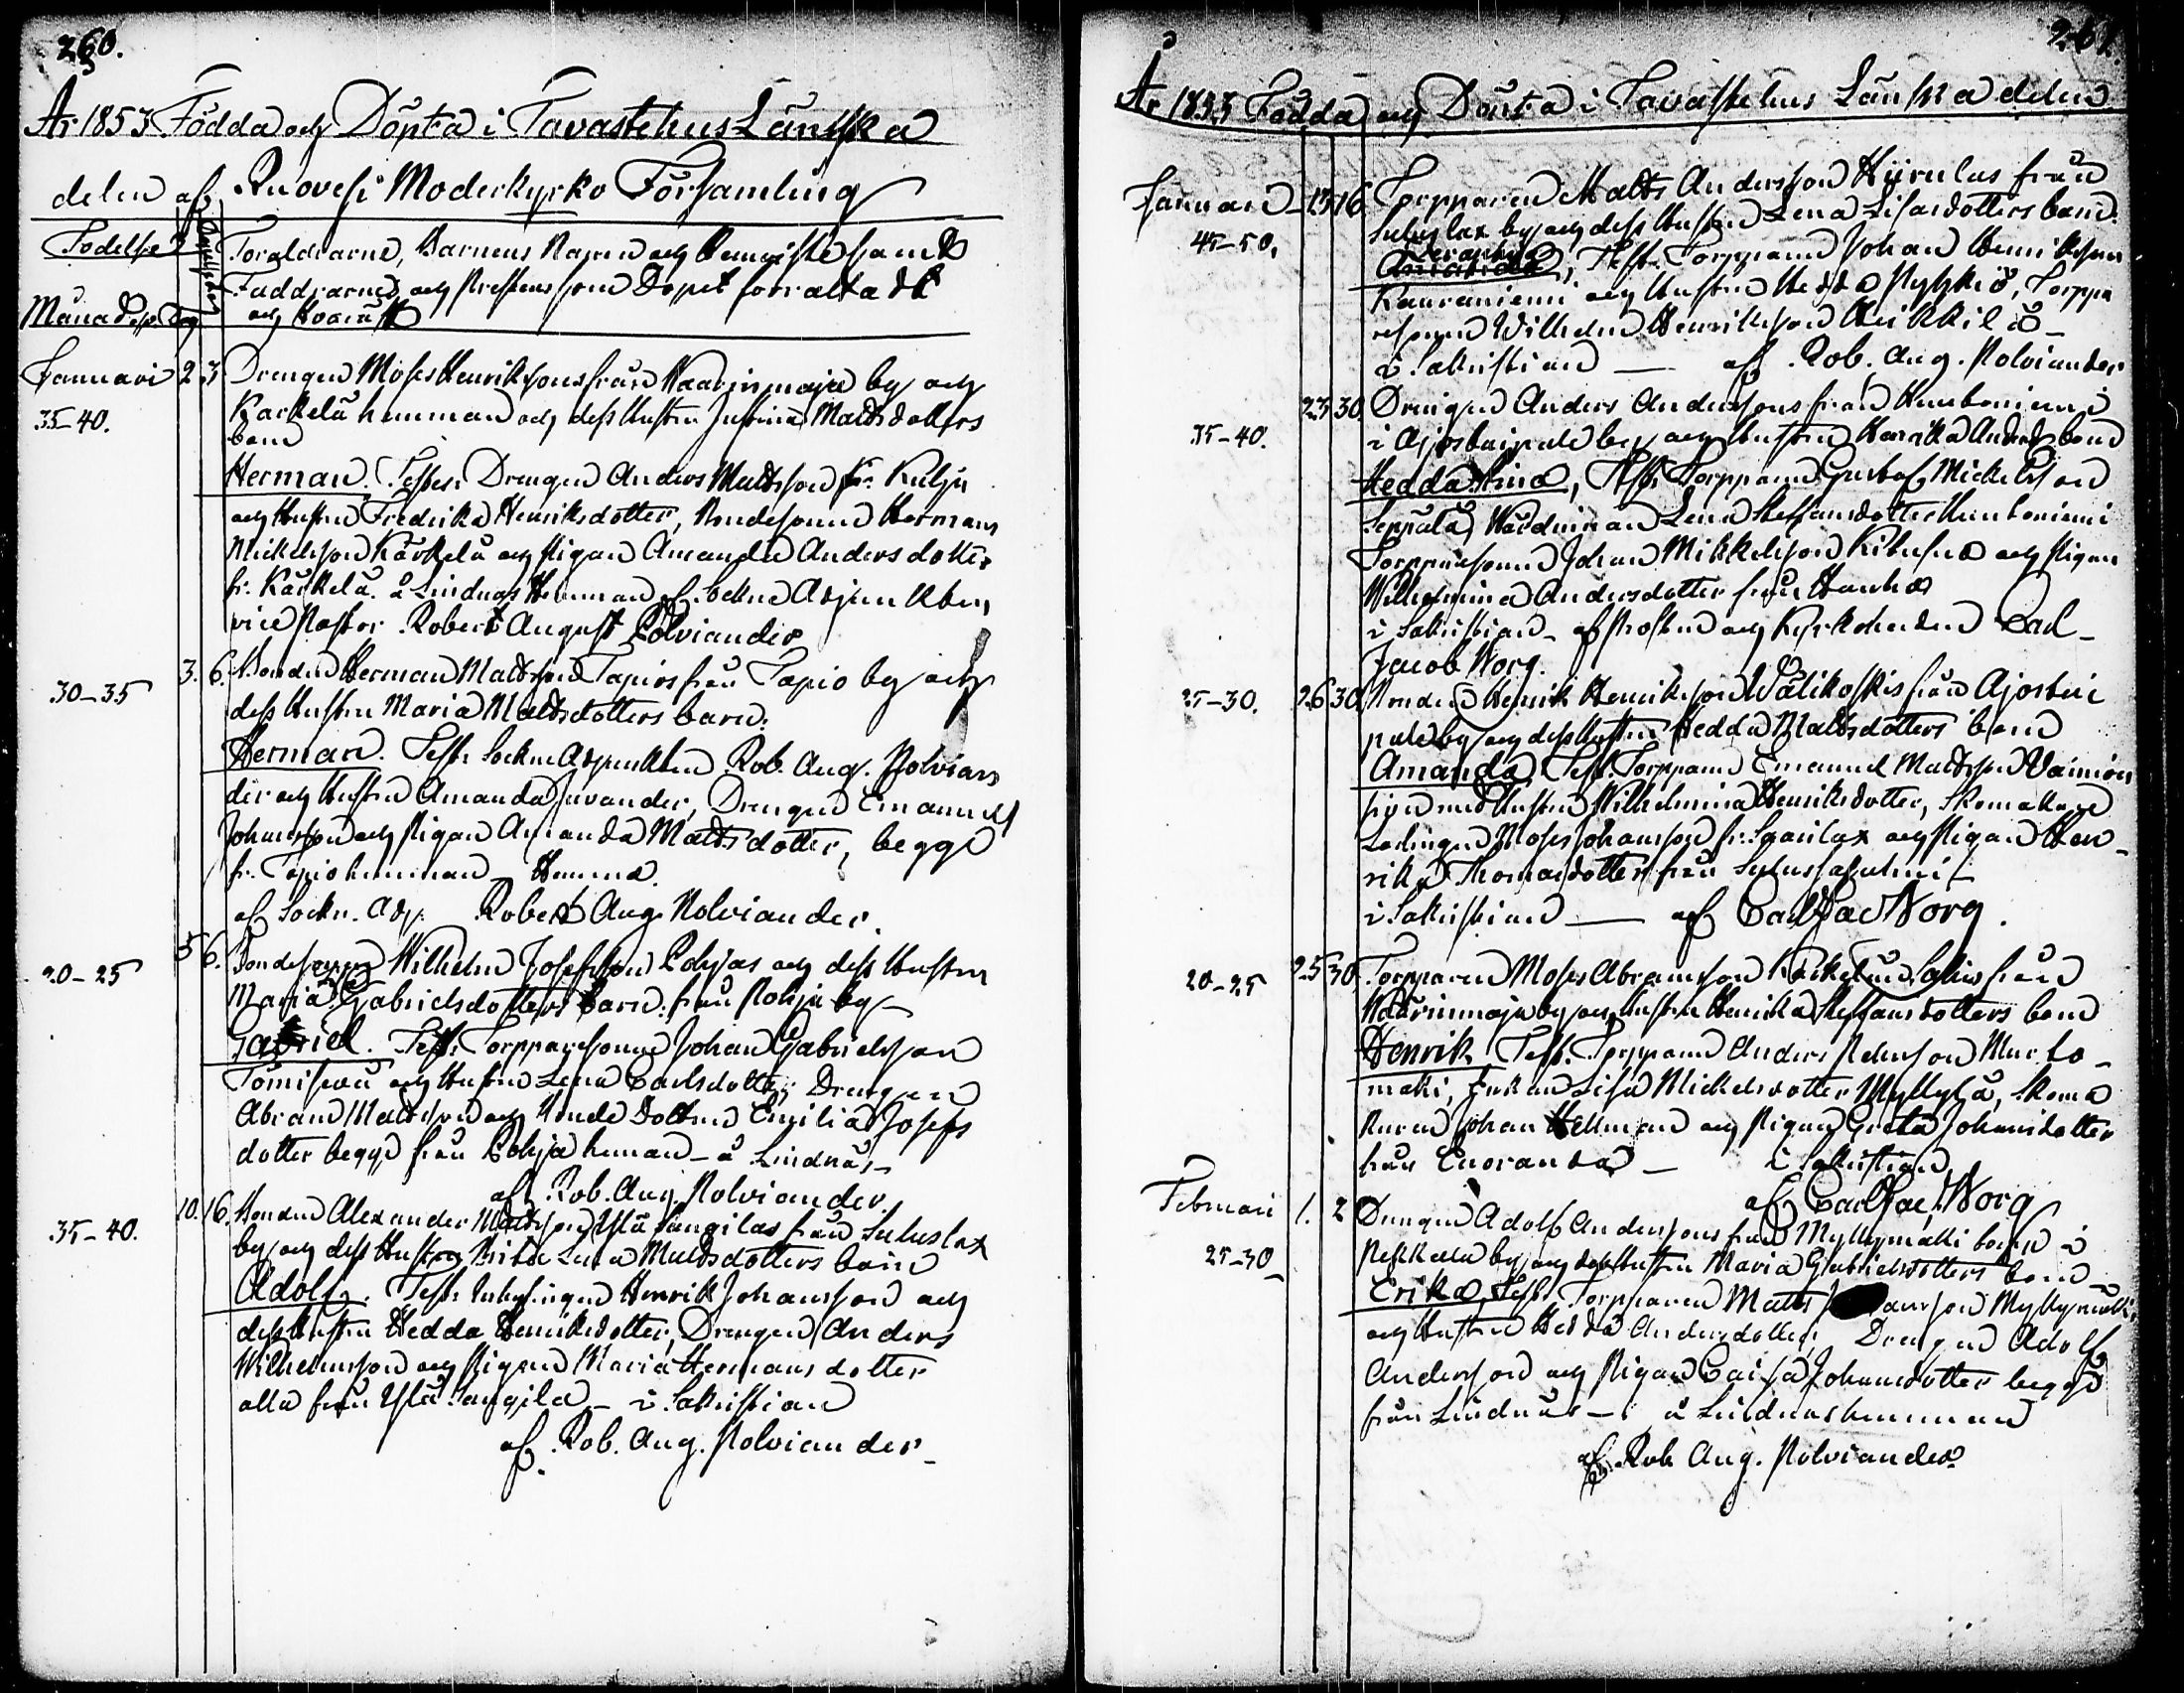 260.
År 1853 Födda och Döpta i Tavastehus Länska
delen af Ruovesi Moderkyrko Församling
Födelse
Föräldrarne, Barnens Namn och Hemvist samt
Faddrarne och Presten som Dopet förrättade
Månad Dag och hvaräst
Januari 2 3 Drengen Moses Henrikssons från Waarinmaja by och
35-40. Kärkelä hemman och dess Hustru Justina Mattsdotters
barn
Herman. Testes: Drengen Anders Mattsson fr. Kulju
och Hustrun Fredrika Henriksdotter, Bondesonen Herman
Mickelsson Kärkelä och Pigan Amanda Andersdotter
fr. Kärkelä. å Lindnäs Hemman af Sockne Adjunkten,
vice Pastor Robert August Polviander
30-35 3. 6. Bonden Herman Mattsson Tapios från Tapio by och
dess Hustru Maria Mattsdotters barn:
Herman. Test: Sockne Adjunkten Rob. Aug. Polvian
der och Hustrun Amanda Juvander, Drengen Emanuel
Johansson och Pigan Amanda Mattsdotter, begge
fr. Tapio hemman - Hemma
af Sockn. Adj. Robert Aug. Polviander.
20-25 5 6. Bondesonen Wilhelm Josefsson Pohjas och dess Hustru
Maria Gabrielsdotters barn: från Pohja by
Gabriel. Test: Torpparesonen Johan Gabrielsson
och Hustrun Lena Carlsdotter, Drengen
Abram Mattsson och Bonde Dottren Emilia Josefs
dotter begge från Pohja heman - å Lindnäs -
af Rob. Aug. Polviander.
35-40. 10. 16. Bonden Alexander Mattsson Ylä Sangilas från Suluslax
by och dess Hustru Brita Lena Mattsdotters barn
Adolf. Test: Inhysingen Henrik Johansson och
dess Hustru Hedda Henriksdotter, Drengen Anders
Wilhelmsson och Pigan Maria Hermansdotter
alla från Ylä Sangila - i Sakristian
af Rob. Aug. Polviander -
261.
År 1853 Födda och Döpta i Tavastehus Länska delen
Januari 15 16 Torpparen Matts Andersson Hiirulas från
45-50. Suluslax by och dess Hustru Lena Lisasdotters barn.
Serafina, Test: Torpparen Johan Henriksson
Kauraniemi och Hustrun Hedda, Torppa
resonen Wilhelm Henriksson Heikkilä -
i Sakristian - af Rob. Aug. Polviander
35-40. 23 30 Drengen Anders Anderssons från Huuhoniemi
i Ajostaipale by och Hustrun Henrika Andersd. barn
Hedda Stina, Test: Torpparen Gustaf Mickelsson
Seppälä, Wärdinnan Lena Steffansdotter Huuhoniemi
Torpparesonen Johan Mikkelsson och Pigan
Wilhelmina Andersdotter från Hanho
i Sakristian - af Prosten och Kyrkoherden Carl
Jacob Norg.
25-30. 26 30 Bonden Henrik Henriksson Välikoskis från Ajostai
pale by och dess Hustru Hedda Mattsdotters barn
Amanda. Test: Torpparen Emanuel Mattsson Vainion
pää med Hustrun Wilhelmina Henriksdotter, Skomakare
Lärlingen Moses Johansson fr. och Pigan Hen-
rika Thomasdotter från
i Sakristian - af Carl Jac. Norg.
20-25 25 30 Torpparen Moses Abramsson från
Waarinmaja by och Hustrun Henrika Steffansdotters barn
Henrik Test: Torpparen Anders Mur to
mäki, Enkan Lisa Mickelsdotter Myllylä, Skoma
karen Johan Hellman och Pigan Greta Johansdotter
från Enoranda - i Sakristian
af Carl Jac. Norg
Februari 1. 2 Drengen Adolf Anderssons från Myllymäki torp i
25-30 Pekkala by och dess Hustru Maria Gabrielsdotters barn -
Erika, Test: Torpparen Matts Myllymäki,
och Hustrun Hedda Andersdotter, Drengen Adolf
Andersson och Pigan Caisa Johansdotter begge
från Lindnäs - å Lindnäs hemman
af Rob. Aug. Polviander